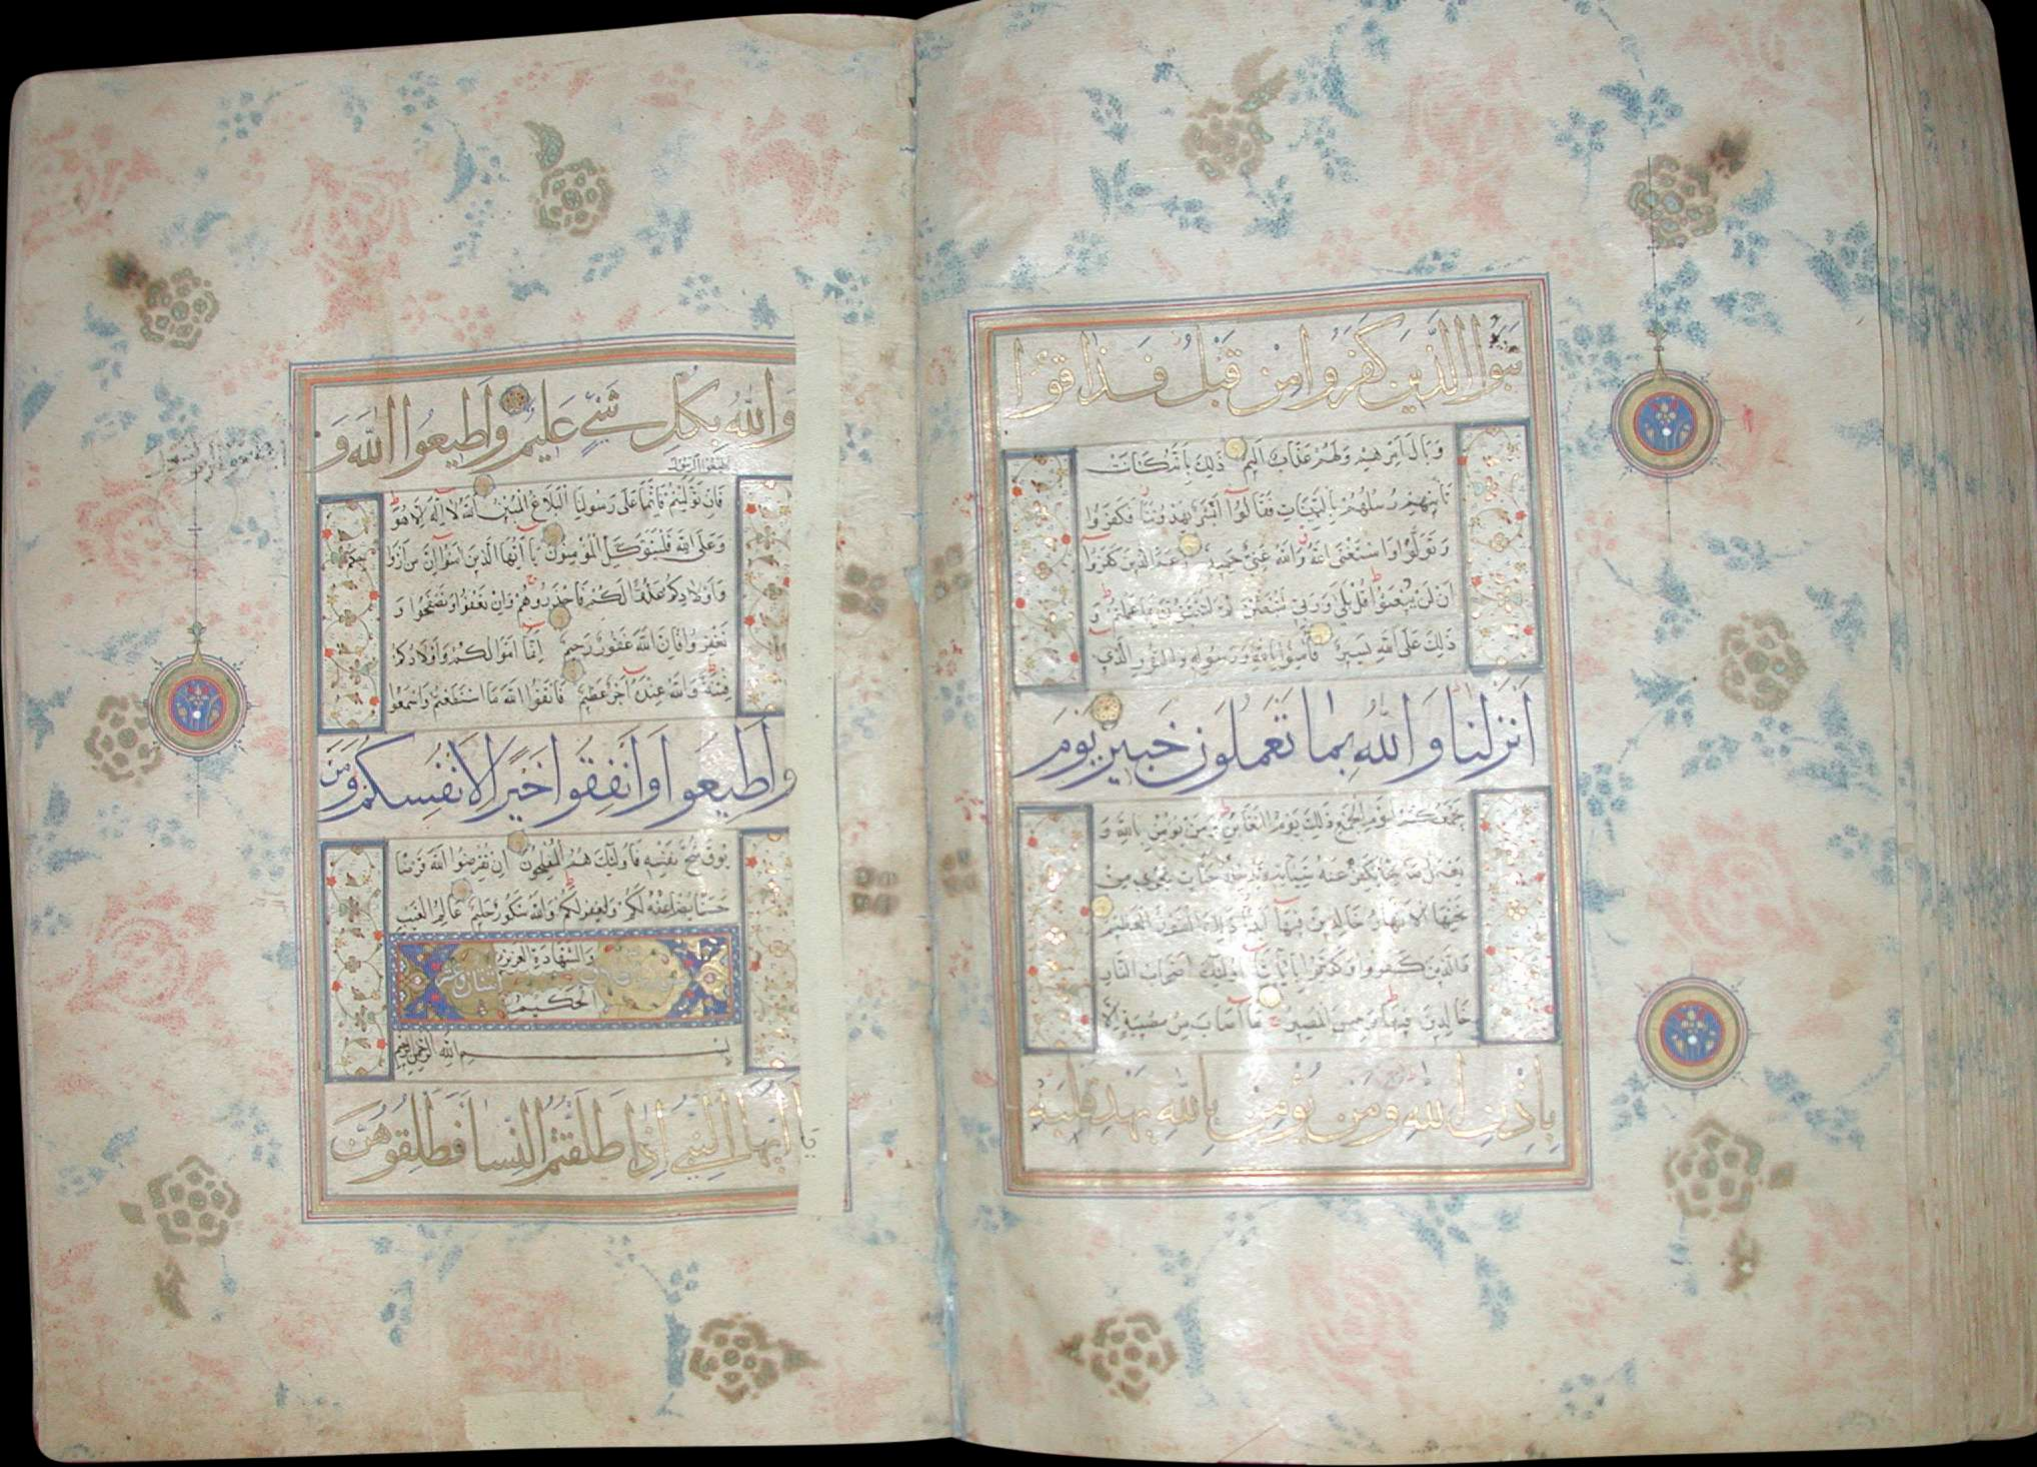 نبؤا الذين كفروا من قبل فذاقوا
وبال امرهم ولهم عذاب اليم ذلك بانه كانت
تاتيهم رسلهم بالبينات فقالوا ابشر يهدوننا فكفروا
وتولوا واستغنى الله والله غنى حميد زعم الذين كفروا
ان لن يبعثوا قل بلى وربى لتبعثن ثم لتنبؤن بما عملتم و
ذلك على الله يسير فآمنوا بالله ورسوله والنور الذى
انزلنا والله بما تعملون خبير يوم
يجمعكم ليوم الجمع ذلك يوم التغابن ومن يؤمن بالله و
يعمل صالحا يكفر عنه سيئاته ويدخله جنات تجرى من
تحتها الانهار خالدين فيها ابدا ذلك الفوز العظيم
والذين كفروا وكذبوا بآياتنا اولئك اصحاب النار
خالدين فيها وبئس المصير ما اصاب من مصيبة الا
باذن الله ومن يؤمن بالله يهد قلبه
والله بكل شىء عليم واطيعوا الله و
اطيعوا الرسول
فان توليتم فانما على رسولنا البلاغ المبين الله لا اله الا هو
وعلى الله فليتوكل المؤمنون يا ايها الذين آمنوا ان من ازوا
جكم
واولادكم عدوا لكم فاحذروهم وان تعفوا وتصفحوا و
تغفروا فان الله غفور رحيم انما اموالكم واولادكم
فتنة والله عنده اجر عظيم فاتقوا الله ما استطعتم واسمعوا
واطيعوا وانفقوا خيرا لانفسكم ومن
يوق شح نفسه فاولئك هم المفلحون ان تقرضوا الله قرضا
حسنا يضاعفه لكم ويغفر لكم والله شكور حليم عالم الغيب
والشهادة العزيز
الحكيم
بسم الله الرحمن الرحيم
يا ايها النبى اذا طلقتم النسا فطلقوهن